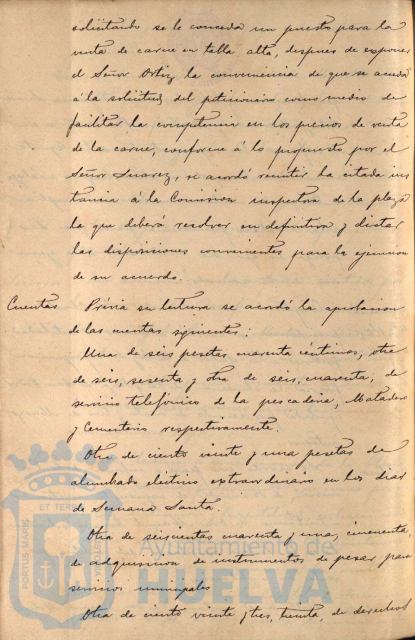 solicitando se le conceda un puesto para la
venta de carne en tabla alta, despues de exponer
el Señor Ortiz la conveniencia de que se acceda
á la solicitud del peticionario como medio de
facilitar la competencia en los precios de venta
de la carne, conforme á lo propuesto por el
Señor Suarez, se acordó remitir la citada ins
tancia á la Comision inspectora de la plaza
la que deberá resolver en definitiva y dictar
las disposiciones convenientes para la ejecucion
de su acuerdo.
Cuentas Prévia su lectura se acordó la aprobacion
de las cuentas siguientes:
Una de seis pesetas cuarenta céntimos, otra
de seis, sesenta y otra de seis, cuarenta, de
servicio telefónico de la pescaderia, Matadero
y Cementerio respectivamente.
Otra de ciento veinte y una pesetas de
alumbrado electrico extraordinario en los dias
de Semana Santa.
Otra de seiscientas cuarenta y una, cincuenta,
de adquisicion de instrumentos de pesar para
servicios municipales
Otra de ciento veinte y tres, treinta, de derechos
PORTUS MARIS ET TERRAE
Ayuntamiento de
HUELVA